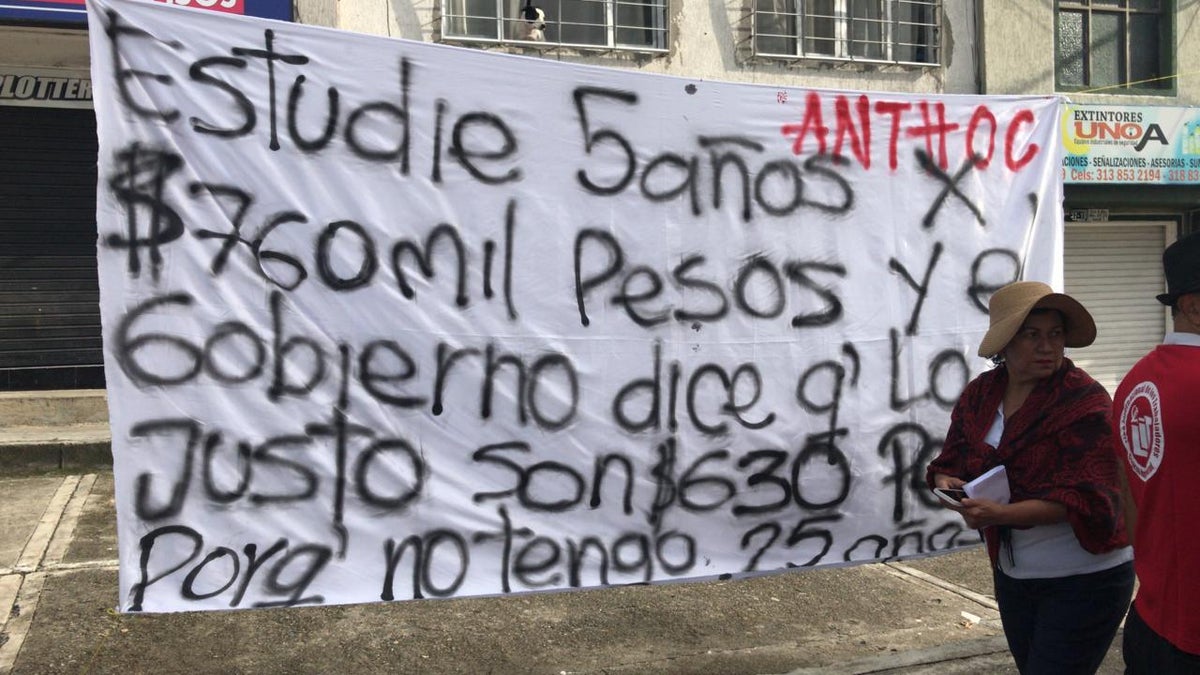 LOTTER
Estudie 5 años x
ANTHOC
$760 mil Pesos y e
Gobierno dice q' Lo
Justo son $630
Porq' no tengo 25 años
EXTINTORES
UNOA
CIONES - SEÑALIZACIONES - ASESORIAS - SUM
Cels: 313 853 2194 - 318 83